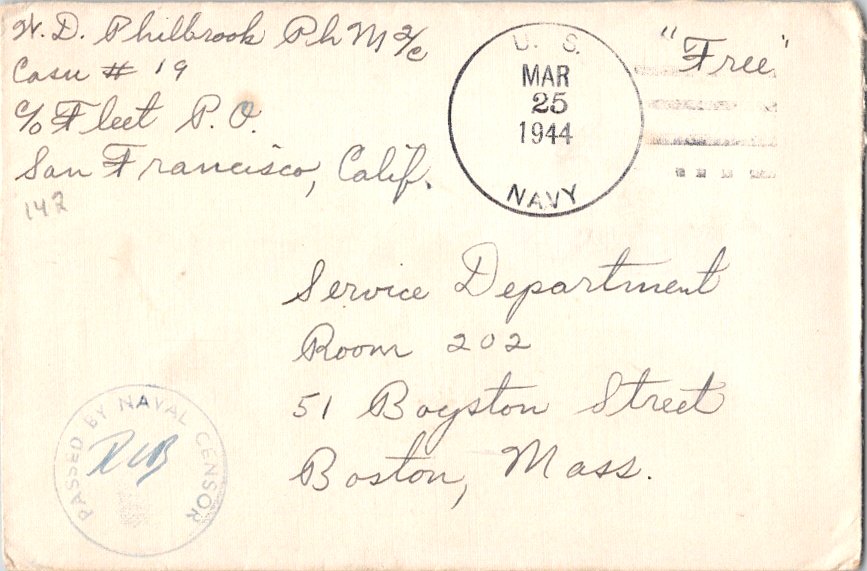 W. D. Philbrook Ph M 2/c
Casu # 19
c/o Fleet P. O.
San Francisco, Calif.
142
U. S.
MAR
25
1944
NAVY
"Free"
Service Department
Room 202
51 Boyston Street
Boston, Mass.
PASSED BY NAVAL CENSOR